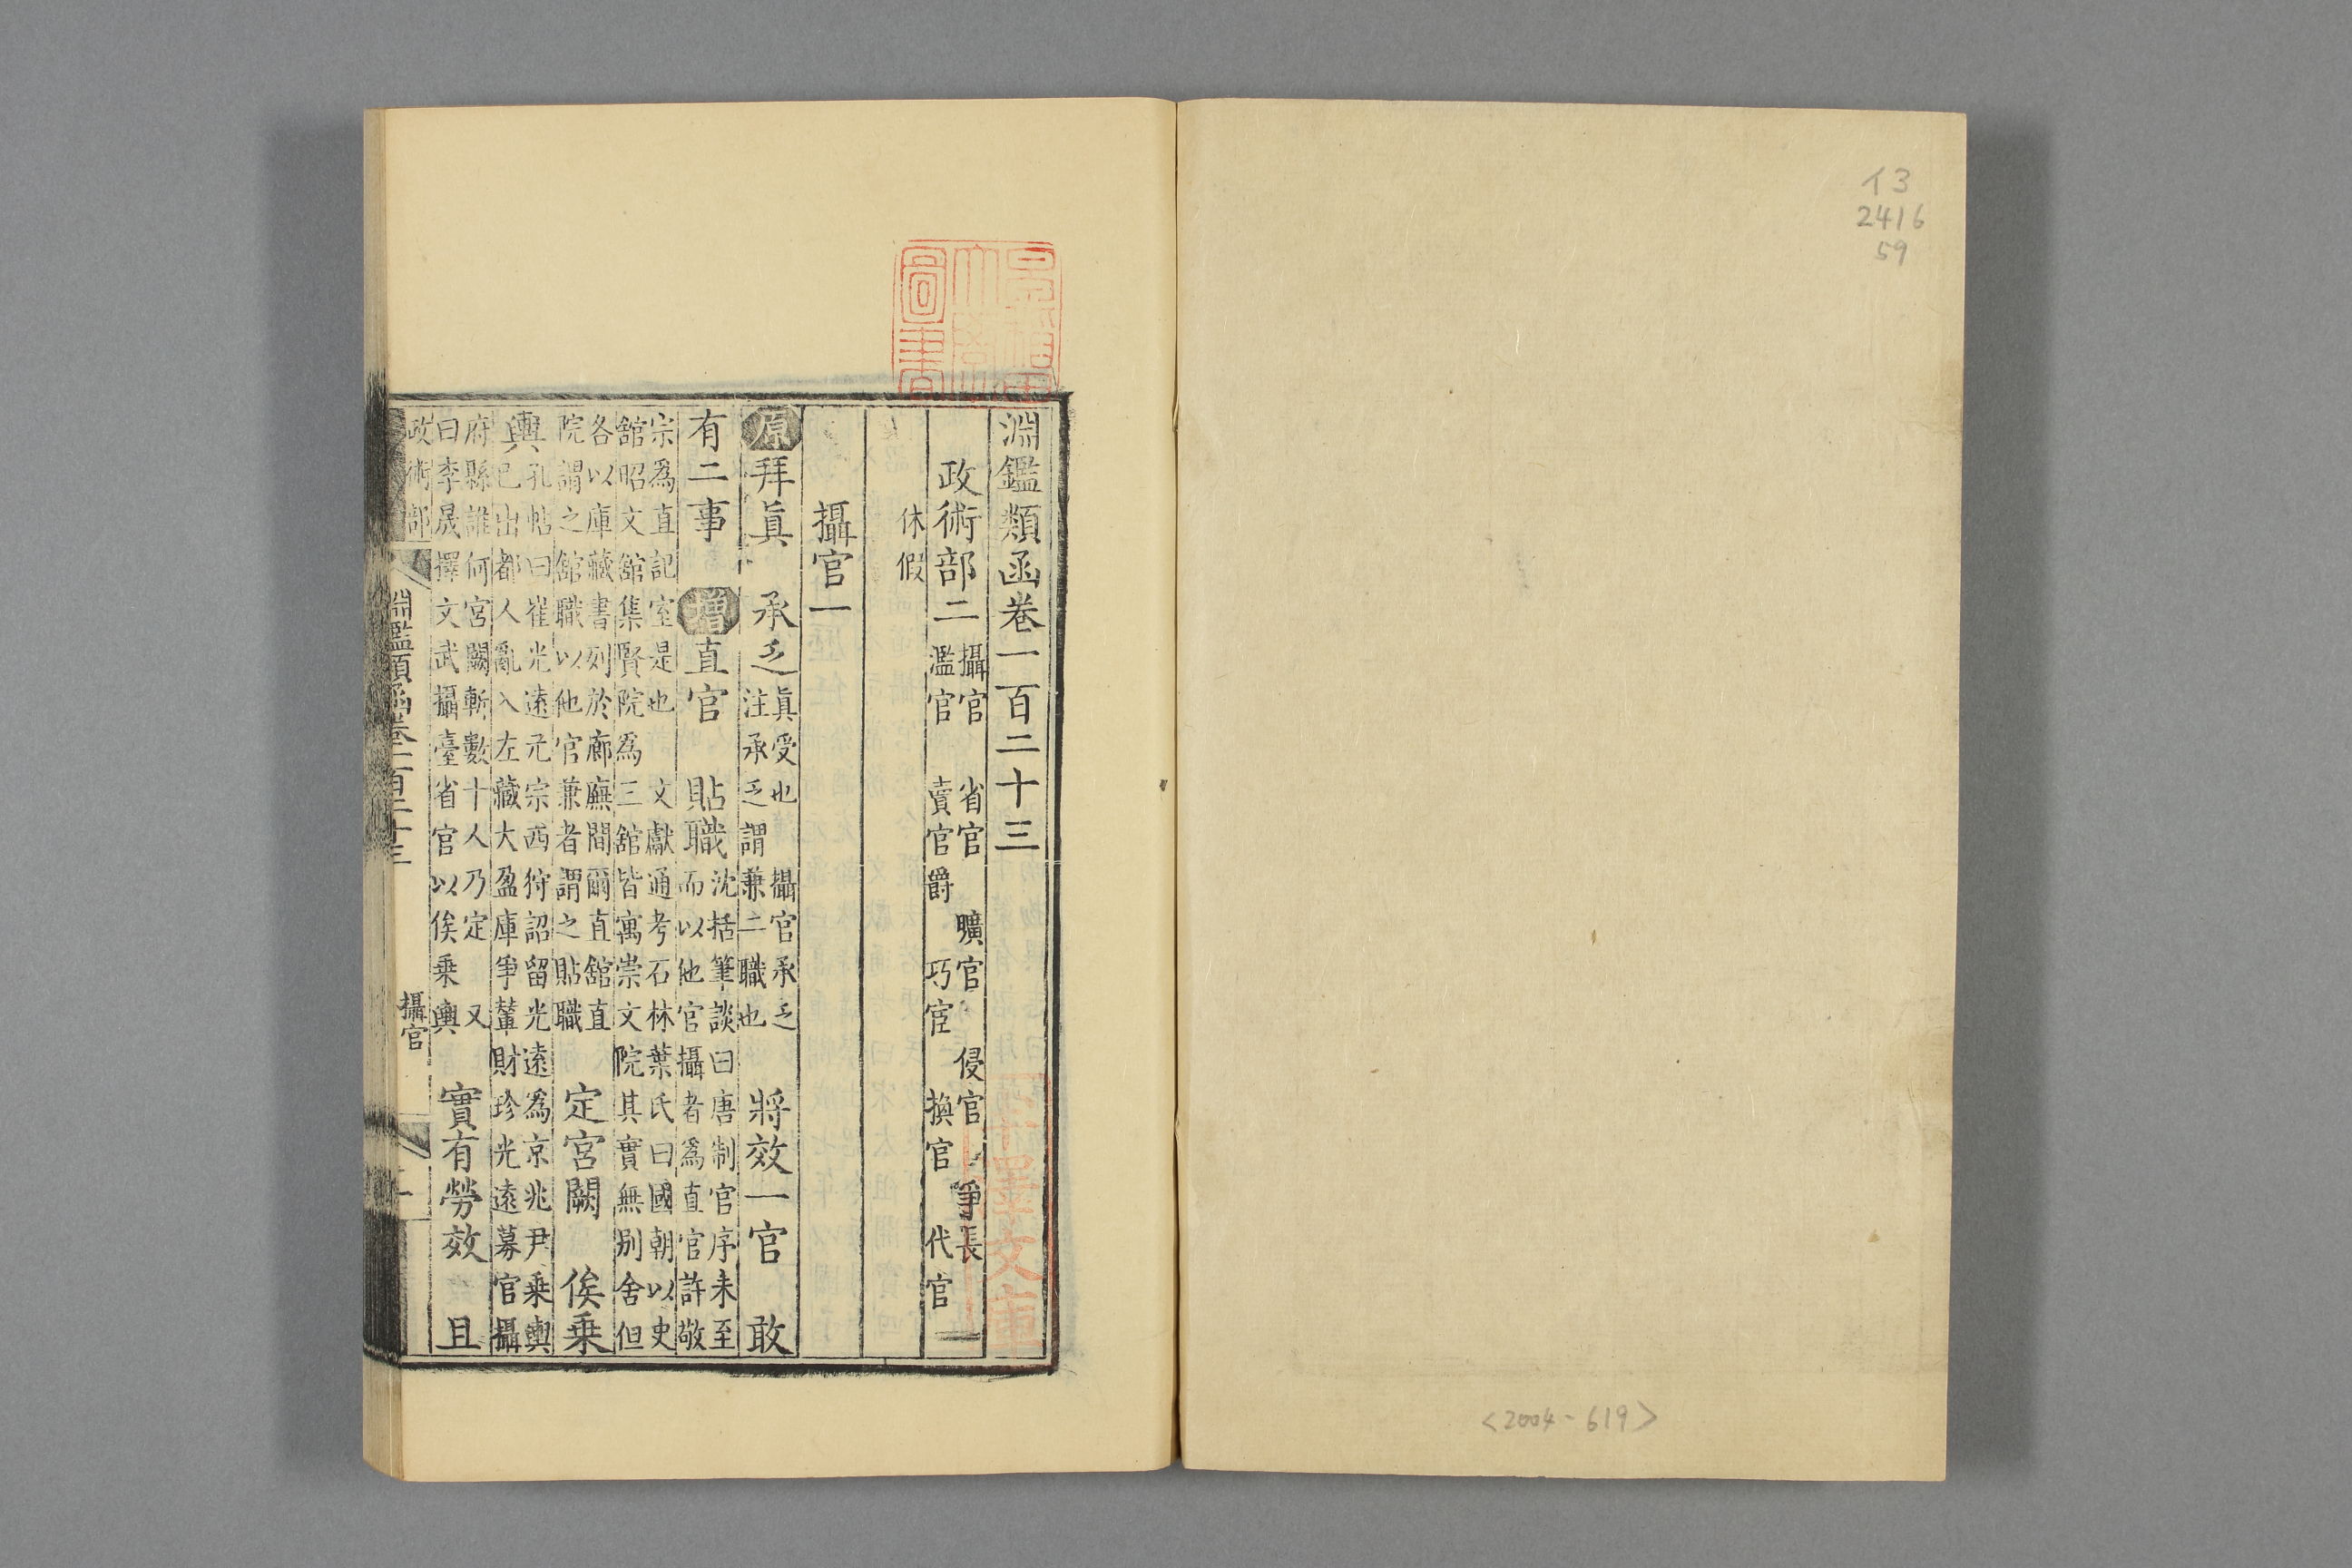 イ3
2416
59
<2004-619>
淵鑑類函卷一百二十三
政術部二
攝官 省官 曠官 侵官 爭長
濫官 賣官爵 巧宦 換官 代官
休假
攝官一
原拜眞 承乏
眞受也 攝官承乏
注承乏謂兼二職也
將效一官 敢
有二事 增直官 貼職
沈括筆談曰唐制官序未至
而以他官攝者爲直官許敬
宗爲直記室是也 文獻通考石林葉氏曰國朝以史
舘昭文舘集賢院爲三舘皆寓崇文院其實無别舍但
各以庫藏書列於廊廡間爾直舘直
院謂之舘職以他官兼者謂之貼職
定宮闕 俟乗
輿
孔帖曰崔光遠元宗西狩詔留光遠爲京兆尹乗輿
已出都人亂入左藏大盈庫爭輦財珍光遠募官攝
府縣誰何宮闕斬數十人乃定 又
曰李晟擇文武攝臺省官以俟乗輿
實有勞效 且
政術部 淵鑑類函卷一百二十三 攝官 一
圖書
澤文庫